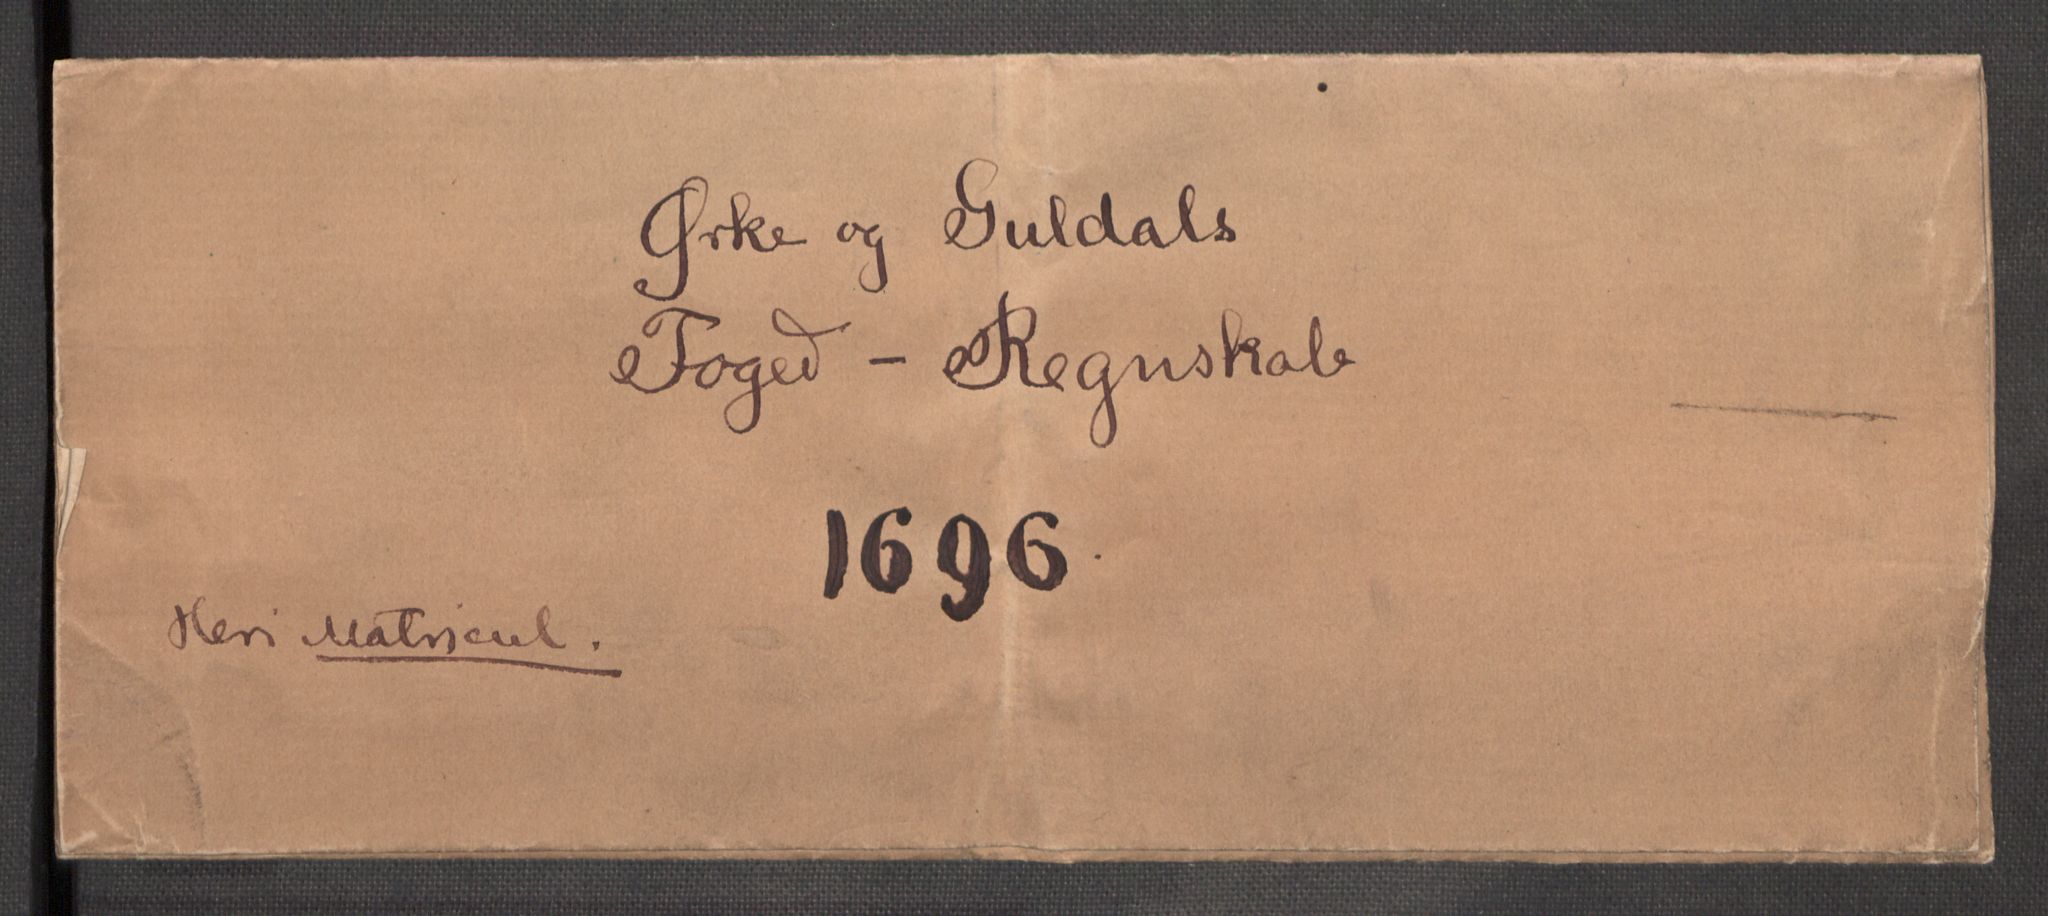 Ørke og Guldals
Foged - Regnskab
1696.
Heri Matricul.